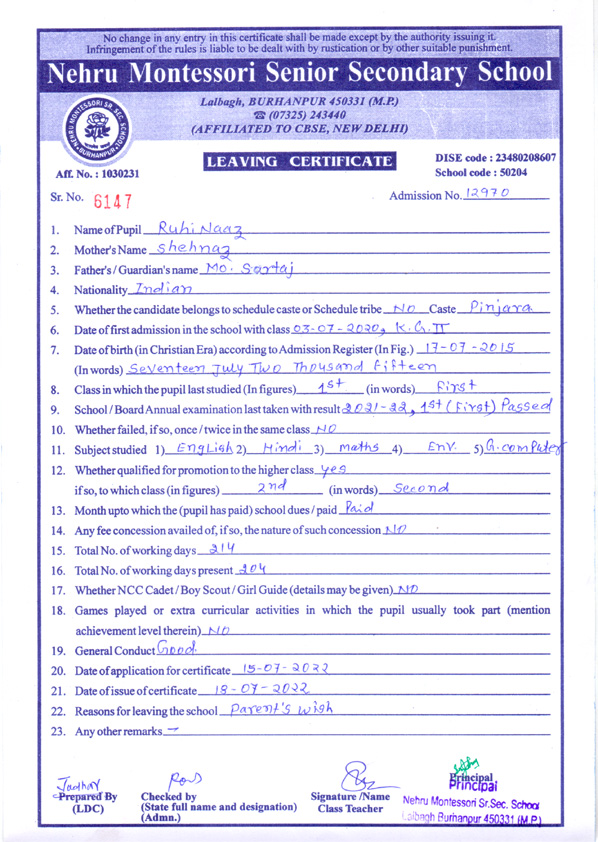 No change in any entry in this certificate shall be made except by the authority issuing it.
Infringement of the rules is liable to be dealt with by rustication or by other suitable punishment.
Nehru Montessori Senior Secondary School
Lalbagh, BURHANPUR 450331 (M.P.)
☎ (07325) 243440
(AFFILIATED TO CBSE, NEW DELHI)
NEHRU MONTESSORI SR. SEC. SCHOOL
BURHANPUR
LEAVING CERTIFICATE
DISE code : 23480208607
School code : 50204
Aff. No. : 1030231
Sr. No. 6147
Admission No. 12970
1. Name of Pupil Ruhi Naaz
2. Mother's Name Shehnaz
3. Father's / Guardian's name Mo. Sartaj
4. Nationality Indian
5. Whether the candidate belongs to schedule caste or Schedule tribe NO Caste Pinjara
6. Date of first admission in the school with class 03-07-2020, K.G. II
7. Date of birth (in Christian Era) according to Admission Register (In Fig.) 17-07-2015
(In words) Seventeen July Two Thousand Fifteen
8. Class in which the pupil last studied (In figures) 1st (in words) First
9. School / Board Annual examination last taken with result 2021-22, 1st (First) Passed
10. Whether failed, if so, once / twice in the same class NO
11. Subject studied 1) English 2) Hindi 3) maths 4) Env. 5) G. computer
12. Whether qualified for promotion to the higher class yes
if so, to which class (in figures) 2nd (in words) Second
13. Month upto which the (pupil has paid) school dues / paid Paid
14. Any fee concession availed of, if so, the nature of such concession NO
15. Total No. of working days 214
16. Total No. of working days present 204
17. Whether NCC Cadet / Boy Scout / Girl Guide (details may be given) NO
18. Games played or extra curricular activities in which the pupil usually took part (mention
achievement level therein) NO
19. General Conduct Good
20. Date of application for certificate 15-07-2022
21. Date of issue of certificate 18-07-2022
22. Reasons for leaving the school Parent's wish
23. Any other remarks —
Prepared By
(LDC)
Checked by
(State full name and designation)
(Admn.)
Signature /Name
Class Teacher
Principal
Principal
Nehru Montessori Sr.Sec. School
Lalbagh Burhanpur 450331 (M.P.)